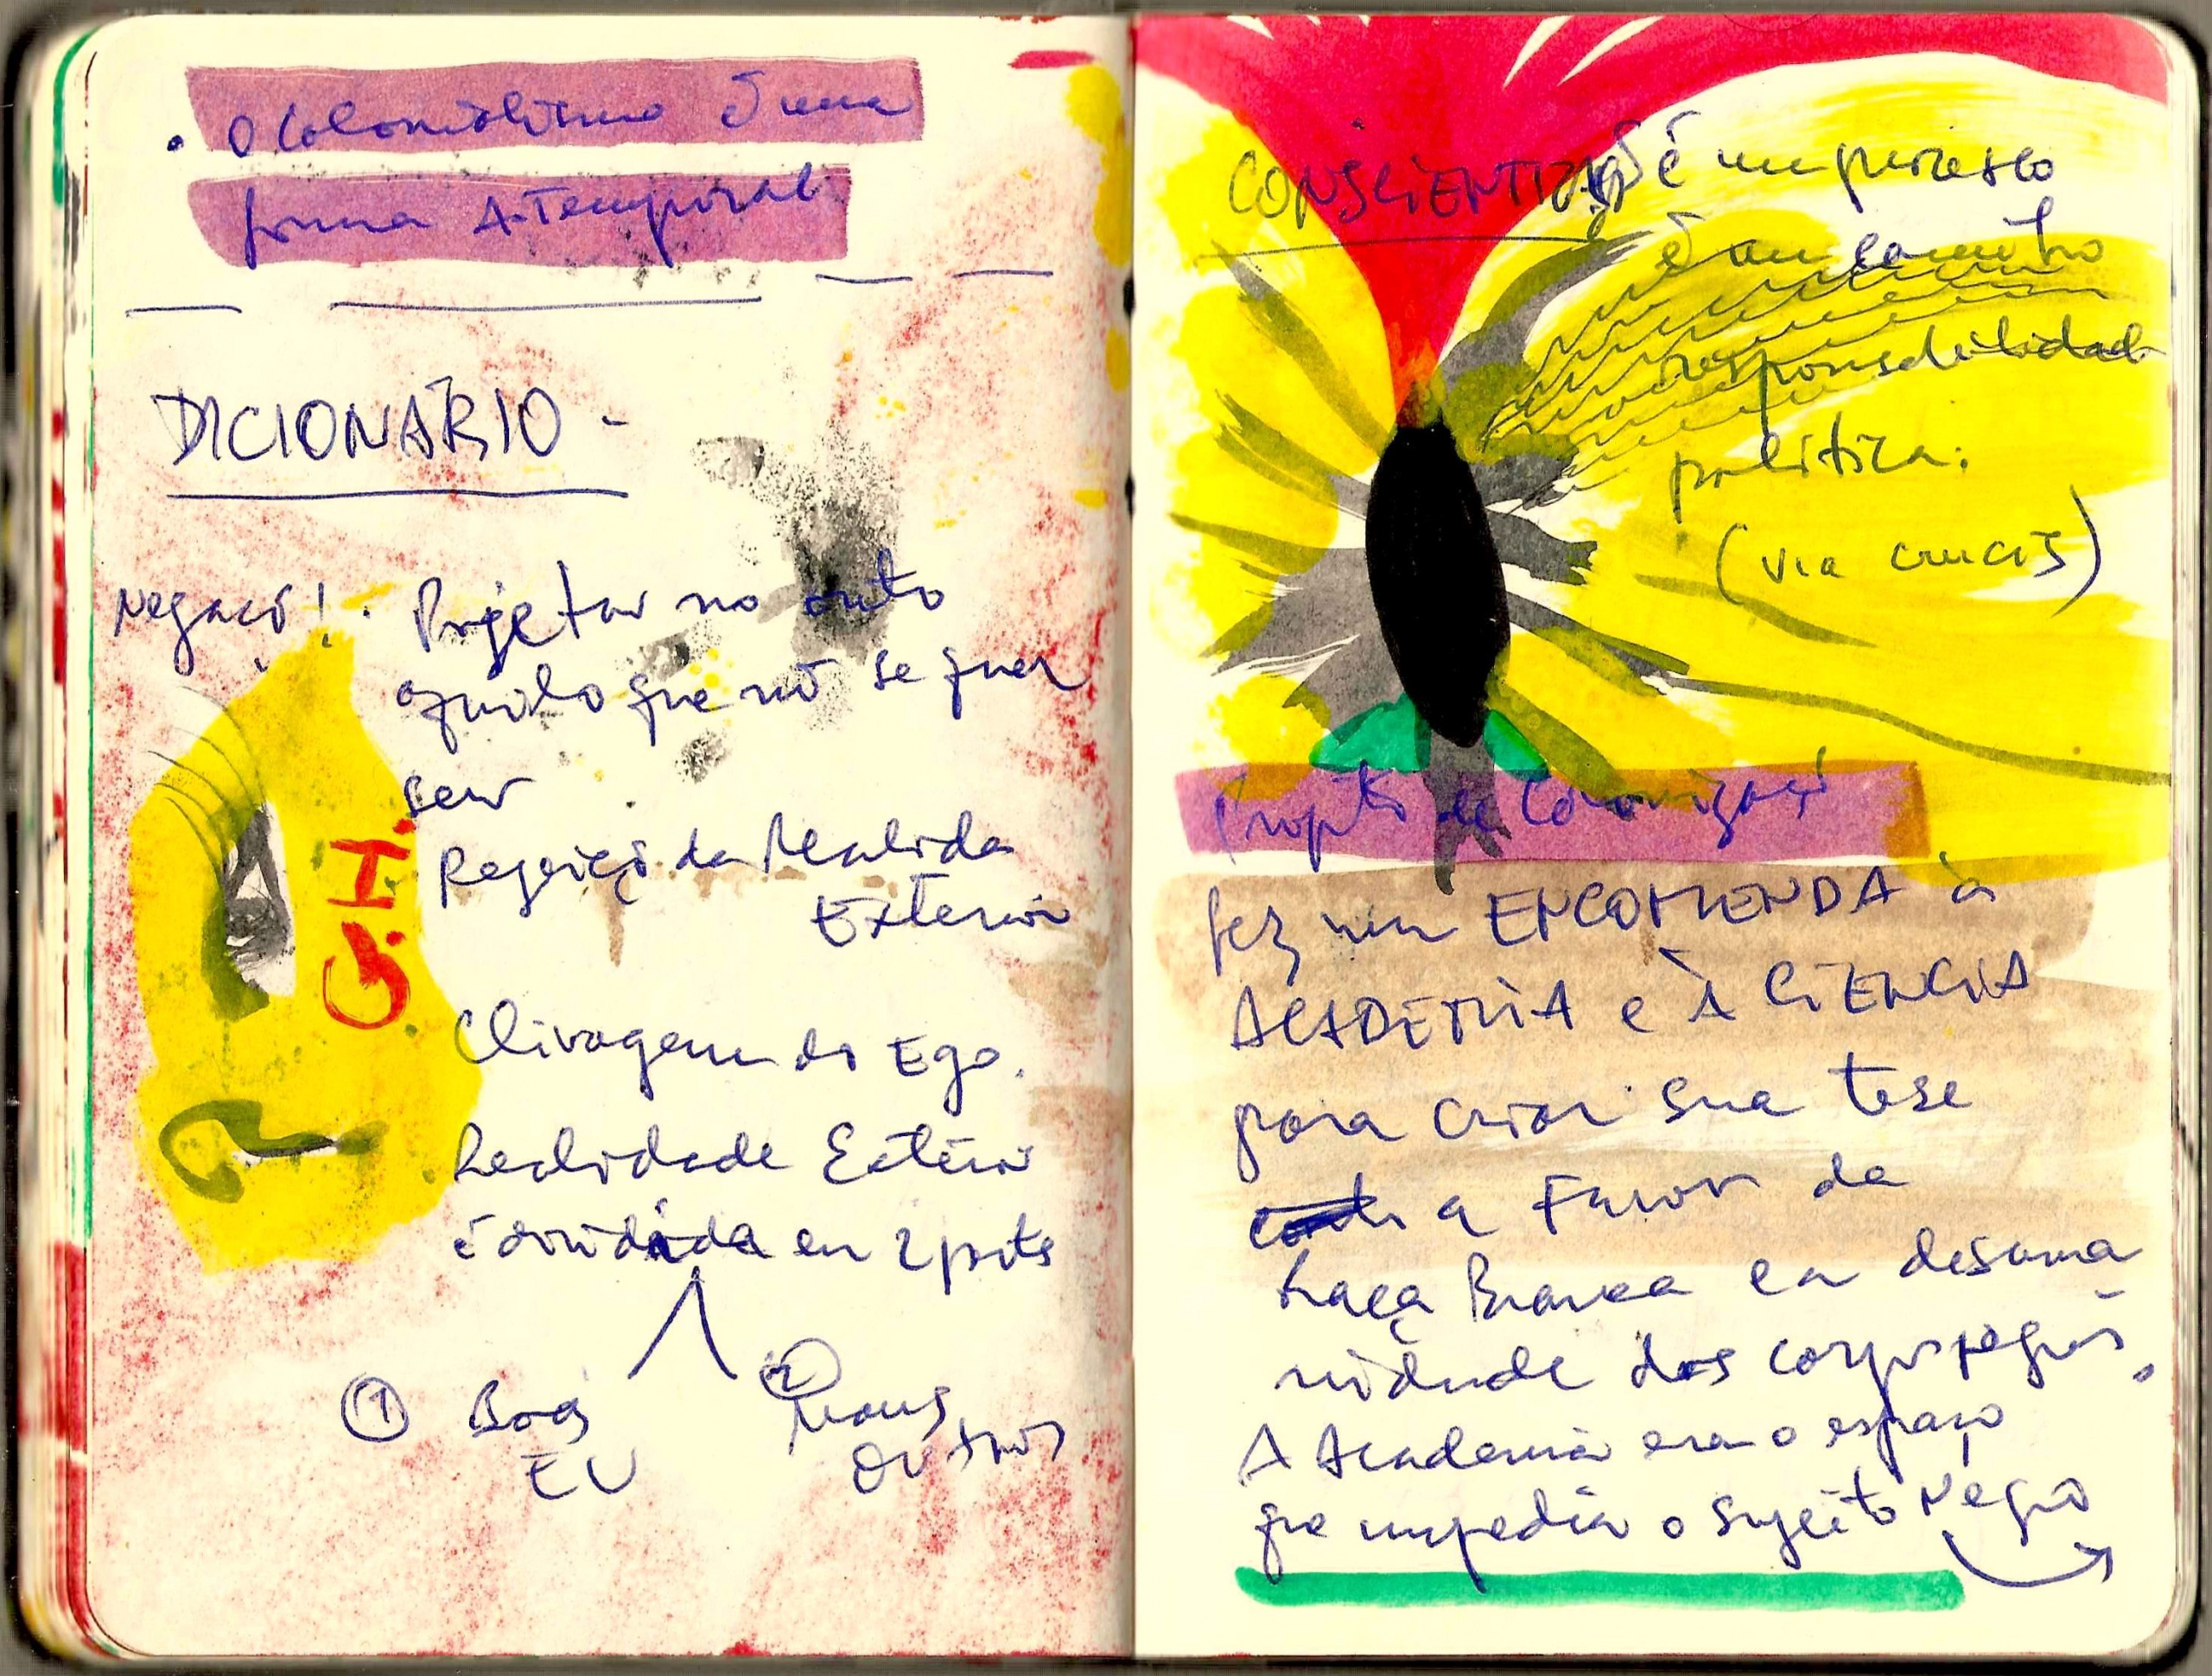 . O Colonialismo é uma
forma A-Temporal.
DICIONÁRIO -
Negacõ! . Projetar no outo
aquilo que nõ se quer
ser
Rejeiçõ da Realida
Exterior
G.H.
Clivagem do Ego.
Realidade Exterior
é dividida em 2 parts
① Boas
EU
② Maus
OUTROS
é um processo
é um caminho
responsabilidade
política:
(via crucis)
de Colonizaçõ
fez um ENCOMENDA à
ACADEMIA e À CIÊNCIA
para criar sua tese
a Favor da
Raça Branca e a desuma
nidade dos corpos negros.
A Academia era o espaço
que impedia o sujeito Negro